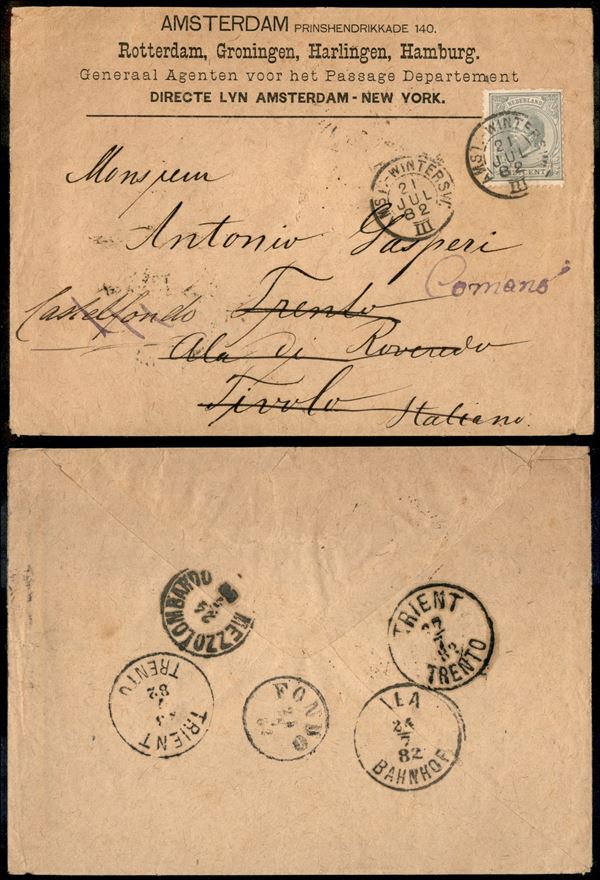 AMSTERDAM PRINSHENDRIKKADE 140.
Rotterdam, Groningen, Harlingen, Hamburg.
Generaal Agenten voor het Passage Departement
DIRECTE LYN AMSTERDAM - NEW YORK.
NEDERLAND
CENT
AMST.-WINTERS
21
JUL
82
III
AMST.-WINTERSW.
21
JUL
82
III
Monsieur
Antonio Gasperi
Comano
Castelfondo Trento
Ala di Roveredo
Tivolo
Italiano.
MEZZOLOMBARDO
24
TRIENT
27
7
82
TRENTO
TRIENT
82
TRENTO
FONDO
82
ALA
24
7
82
BAHNHOF